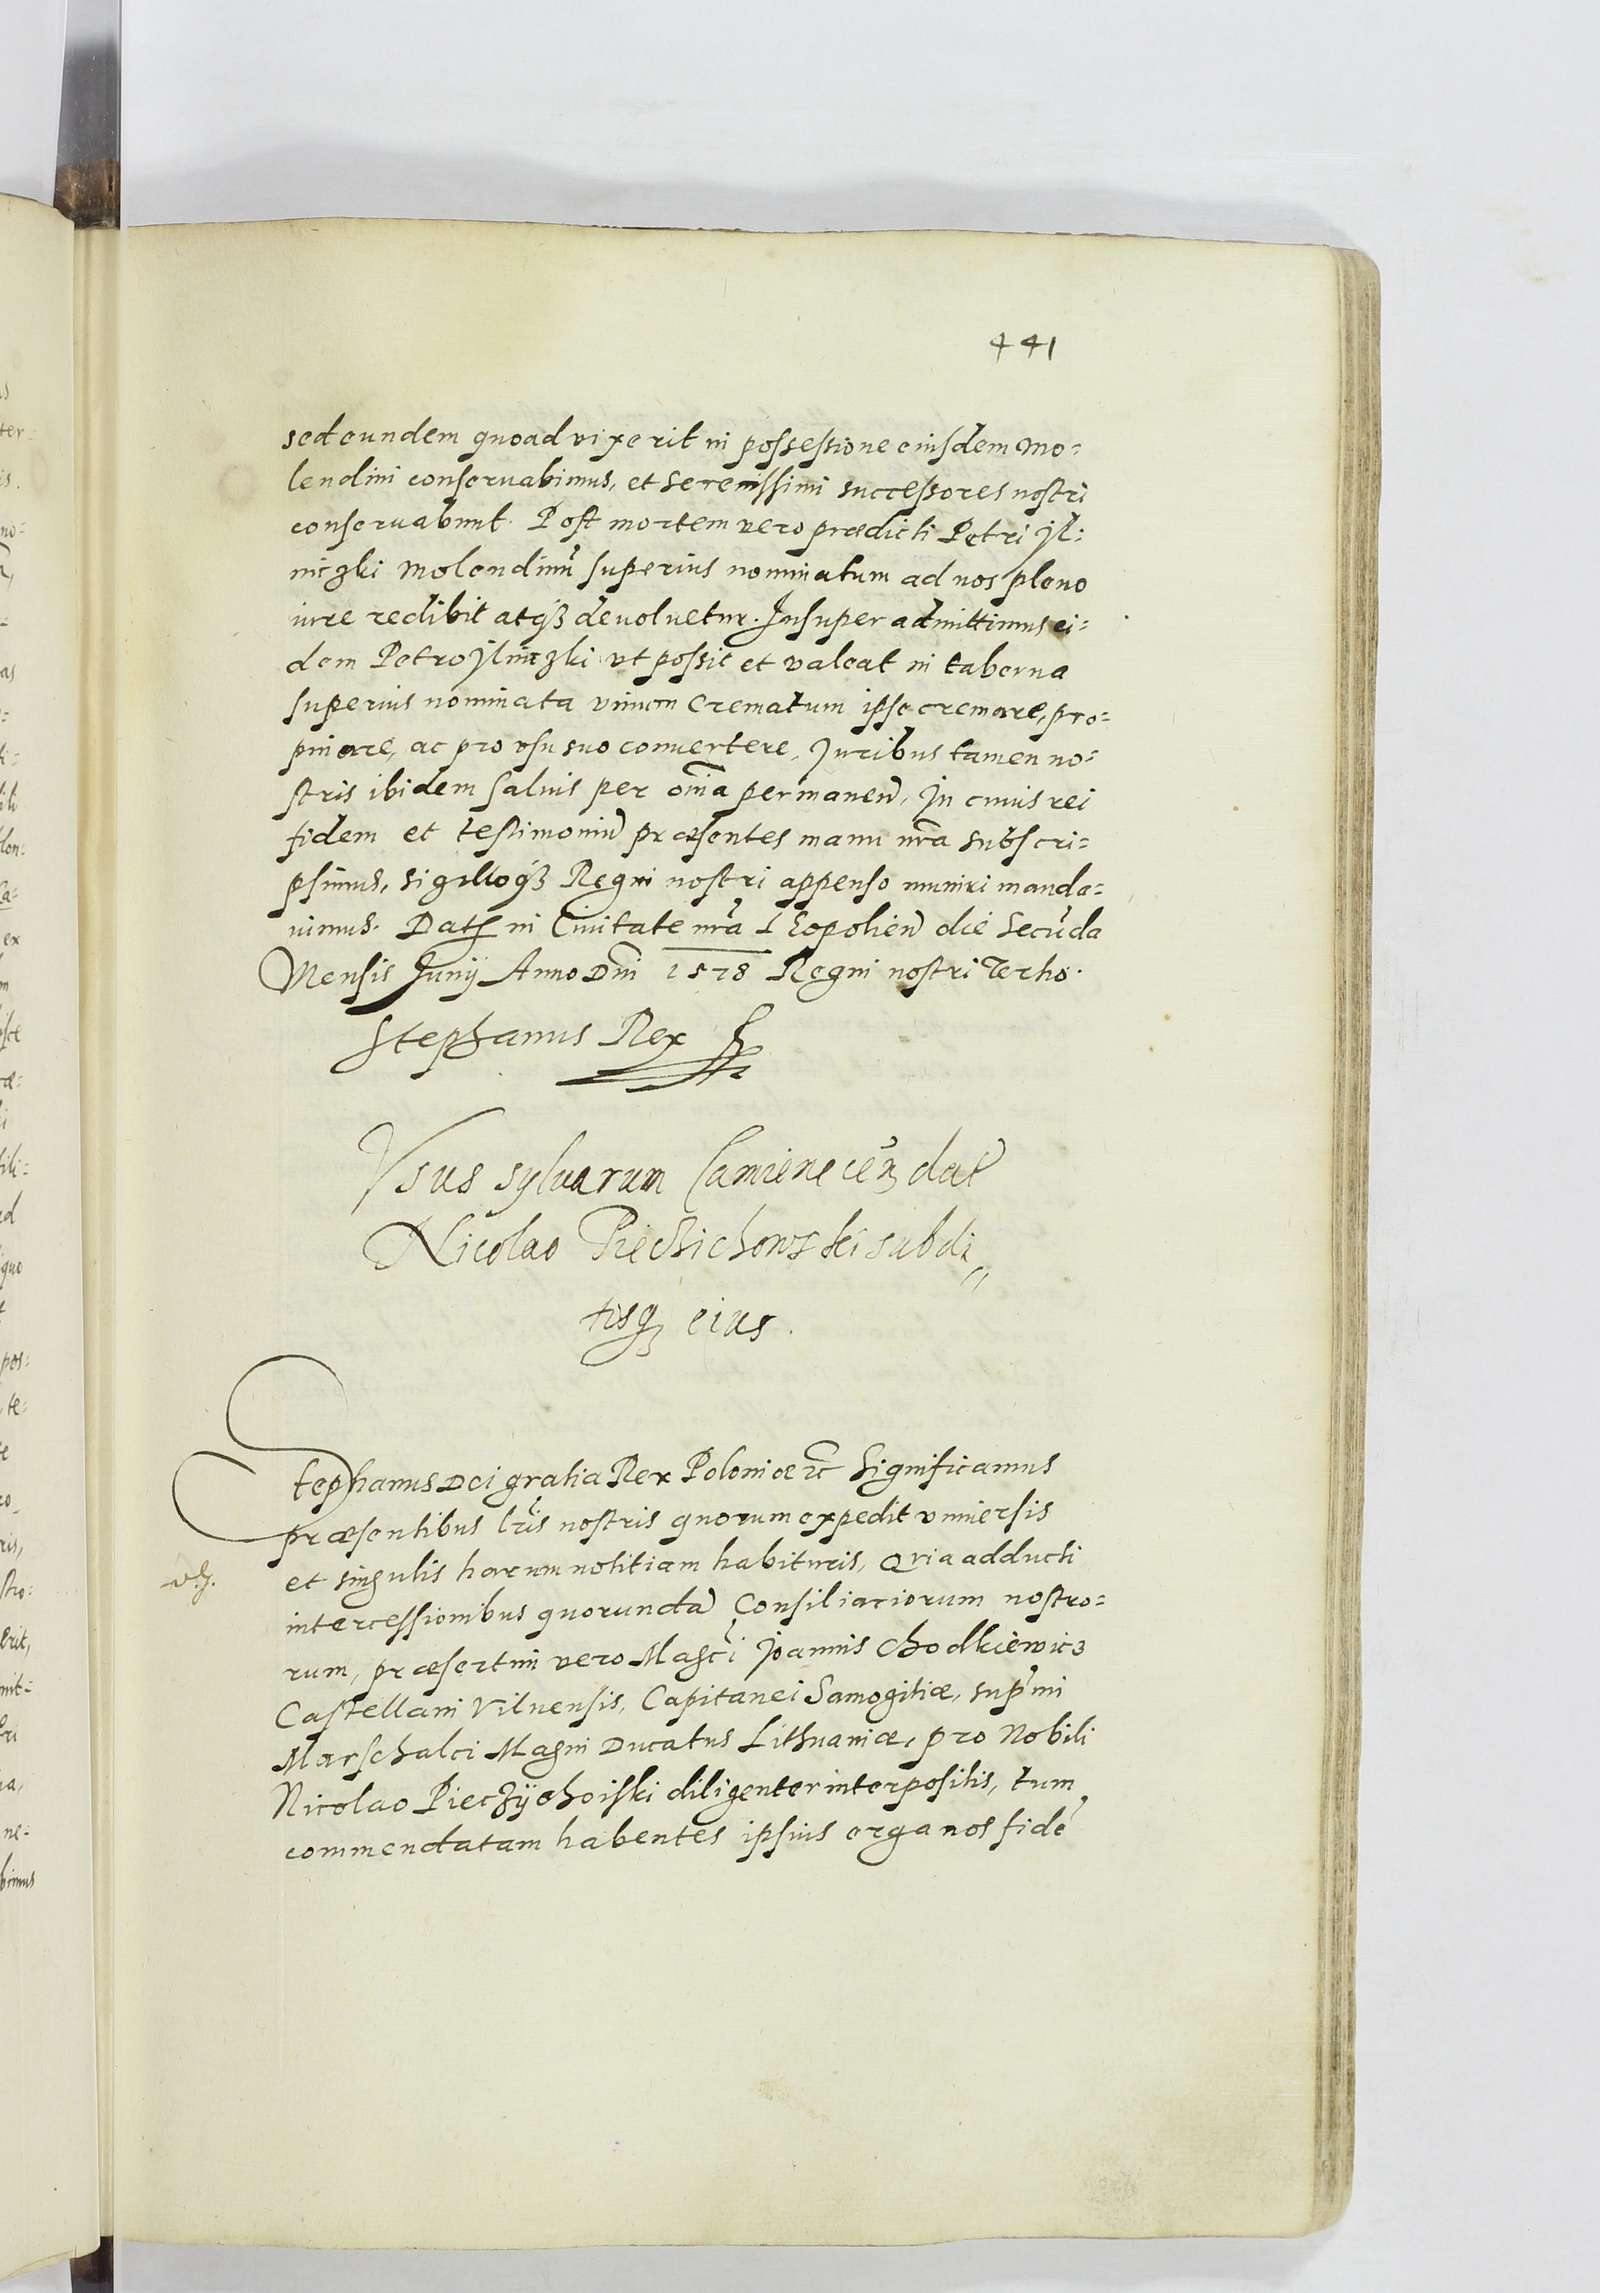 441
sed eundem quoad vixerit in possessione eiusdem mo=
lendini conseruabimus, et serenissimi successores nostri
conseruabunt. Post mortem vero praedicti Petri Jl:
niczki molendinũ superius nominatum ad nos pleno
iure redibit atqꝫ deuoluetur. Insuper admittimus ei=
dem Petro Jlniczki vt possit et valeat in taberna
superius nominata vinum crematum ipse cremare, pro=
pinare, ac pro vsu suo conuertere, Juribus tamen no=
stris ibidem saluis per om̃a permaneñ, In cuius rei
fidem et testimoniũ præsentes manu nr̃a subscri=
psimus, sigilloqꝫ Regni nostri appenso muniri manda=
uimus. Dat in Ciuitate nr̃a Leopolieñ die Secũda
Mensis Junij Anno Dñi 1578 Regni nostri Tertio.
Stephanus Rex
Vsus syluarum Camieneceñ dat̃
Nicolao Piechichowski subdi„
tisqꝫ eius.
Stephanus Dei gratia Rex Poloniæ ꝛc Significamus
præsentibus lr̃is nostris quorum expedit vniuersis
et singulis harum notitiam habituris, Quia adducti
intercessionibus quorundã Consiliariorum nostro=
rum, præsertim vero Magc̃i Joannis Chodkiewicz
Castellani Vilnensis, Capitanei Samogitiæ, sup̃mi
Marschalci Magni Ducatus Lithuaniæ, pro Nobili
Nicolao Pieczÿchoiski diligenter interpositis, tum
commendatam habentes ipsius erga nos fidẽ